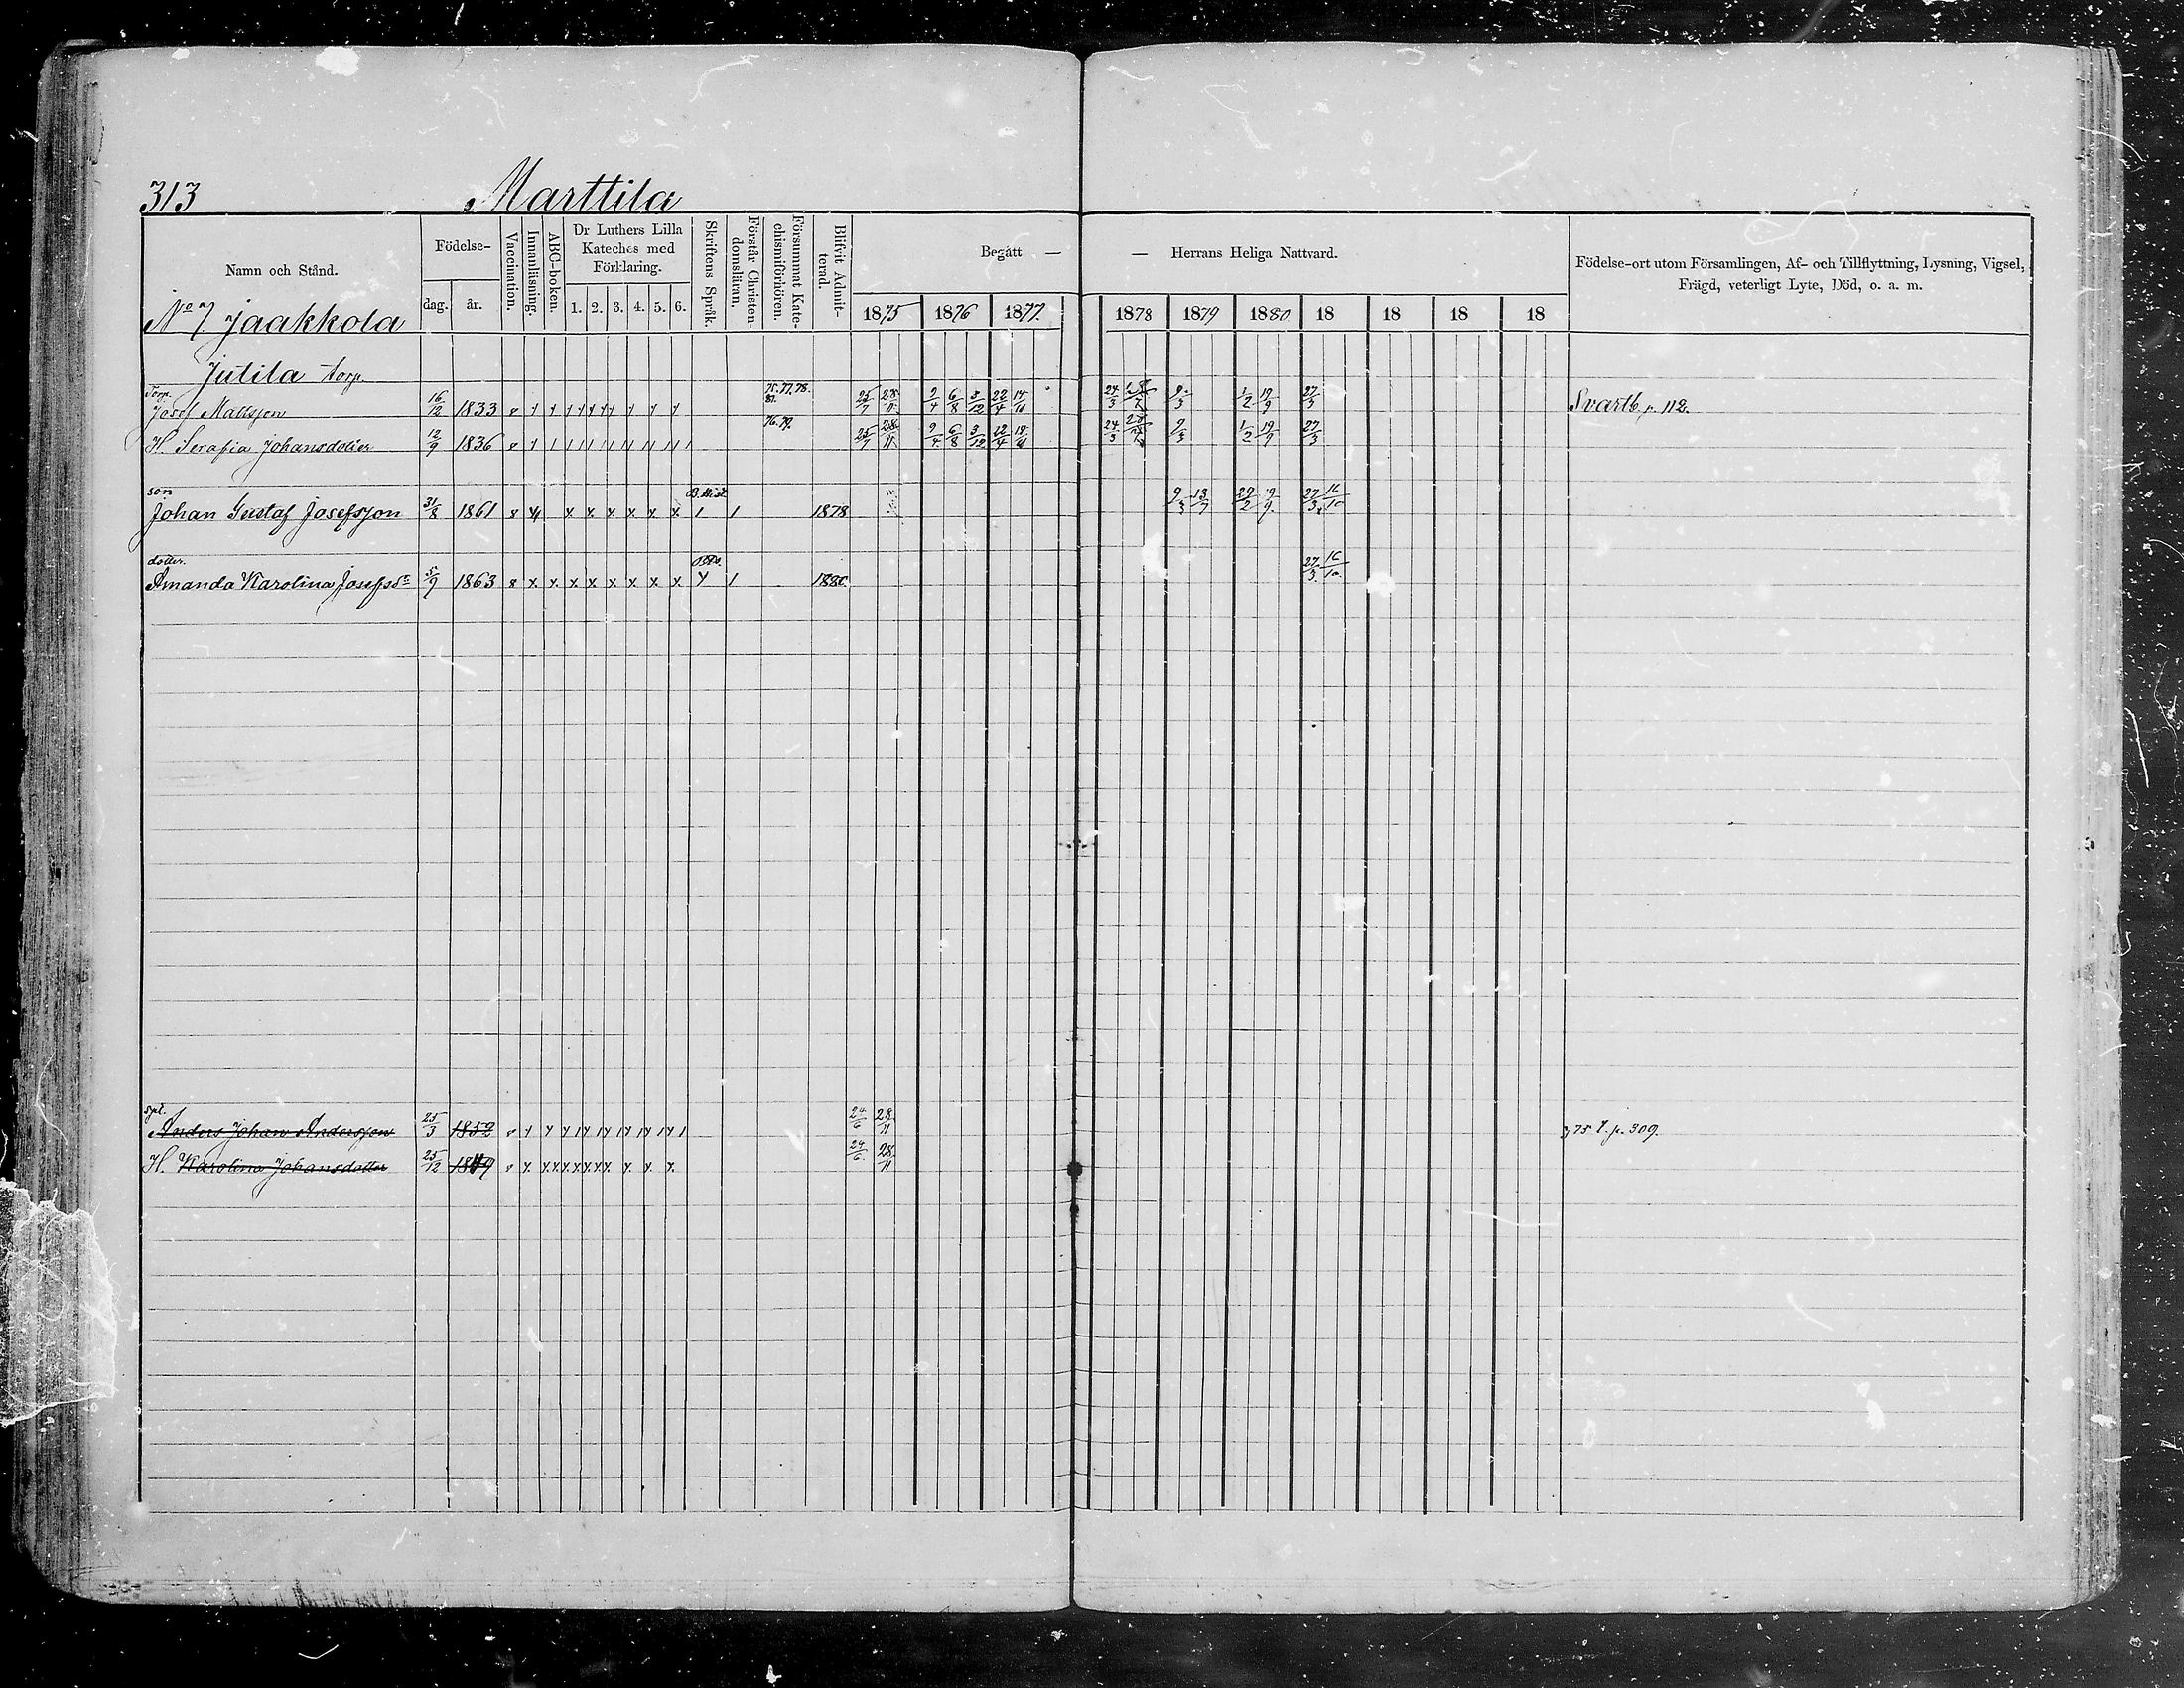 313 Marttila
Namn och Stånd.
Födelse-
dag. år.
Vaccination.
Innanläsning.
ABC-boken.
Dr Luthers Lilla
Kateches med
Förklaring.
1. 2. 3. 4. 5. 6.
Skriftens Språk.
Förstår Christen-
domsläran.
Försummat Kate-
chismiförhören.
Blifvit Admit-
terad.
Begått — — Herrans Heliga Nattvard.
1875 1876 1877. 1878 1879 1880 18 18 18 18
Födelse-ort utom Församlingen, Af- och Tillflyttning, Lysning, Vigsel,
Frägd, veterligt Lyte, Död, o. a. m.
No 7 Jaakkola
Jutila torp.
Torp. 75.77.78.
Josef Mattsson 16/12 1833 25/7 28/11 9/4 6/8 3/12 22/4 14/11 24/3 9/3 1/2 19/9 27/3 Svartb. p. 112.
76.79.
H. Serafia Johansdotter 12/9 1836 25/7 28/11 9/4 6/8 3/12 22/4 14/11 24/3 9/3 1/2 19/9 27/3
son
Johan Gustaf Josefsson 31/8 1861 1878 9/3 13/7 29/2 9/9 27/3 16/10
dotter.
Amanda Karolina Josefsdr 5/9 1863 1880. 27/3 16/10
Anders Johan Andersson 25/3 1852 24/6 28/11 75 t. p. 309.
H. Karolina Johansdotter 25/12 1849 24/6 28/11